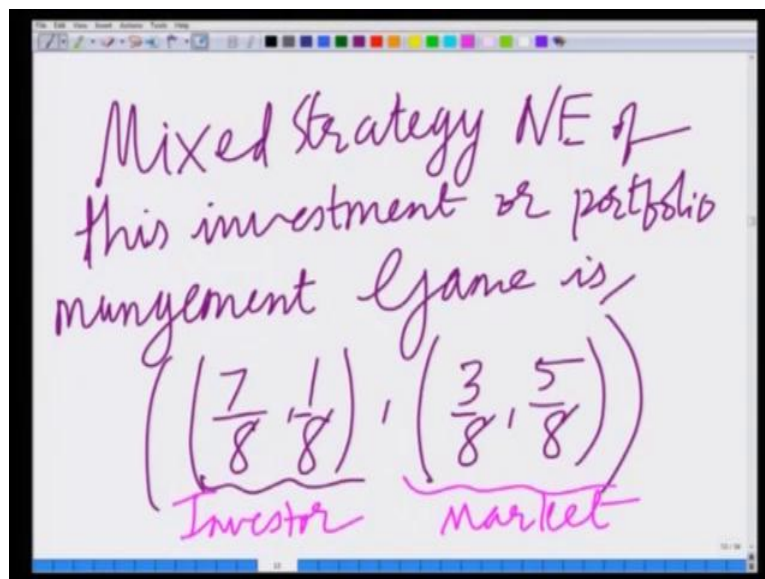 File Edit View Insert Actions Tools Help
Mixed Strategy NE of
this investment or portfolio
mangement Game is,
((7/8, 1/8), (3/8, 5/8))
Investor Market